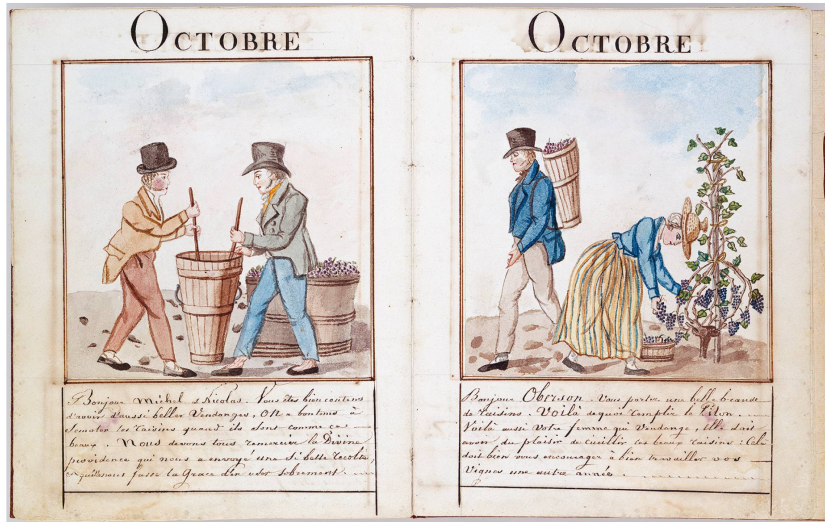 OCTOBRE
Bonjour Michel & Nicolas. Vous êtes bien contens
d'avoir d'aussi belles Vendanges, On a bon tems à
les raisins quand ils sont comme ça
beaux. Nous devons tous remercier la Divine
providence qui nous a envoyé une si belle recolte
qu'il nous fasse la Grace d'en user sobrement
OCTOBRE
Bonjour Oberson. Vous portez une belle
de raisins. Voilà de quoi remplir le
Voilà aussi Votre femme qui Vendange, elle doit
avoir du plaisir de cueillir ces beaux raisins : Cela
doit bien vous encourager à bien travailler vos
Vignes une autre année.